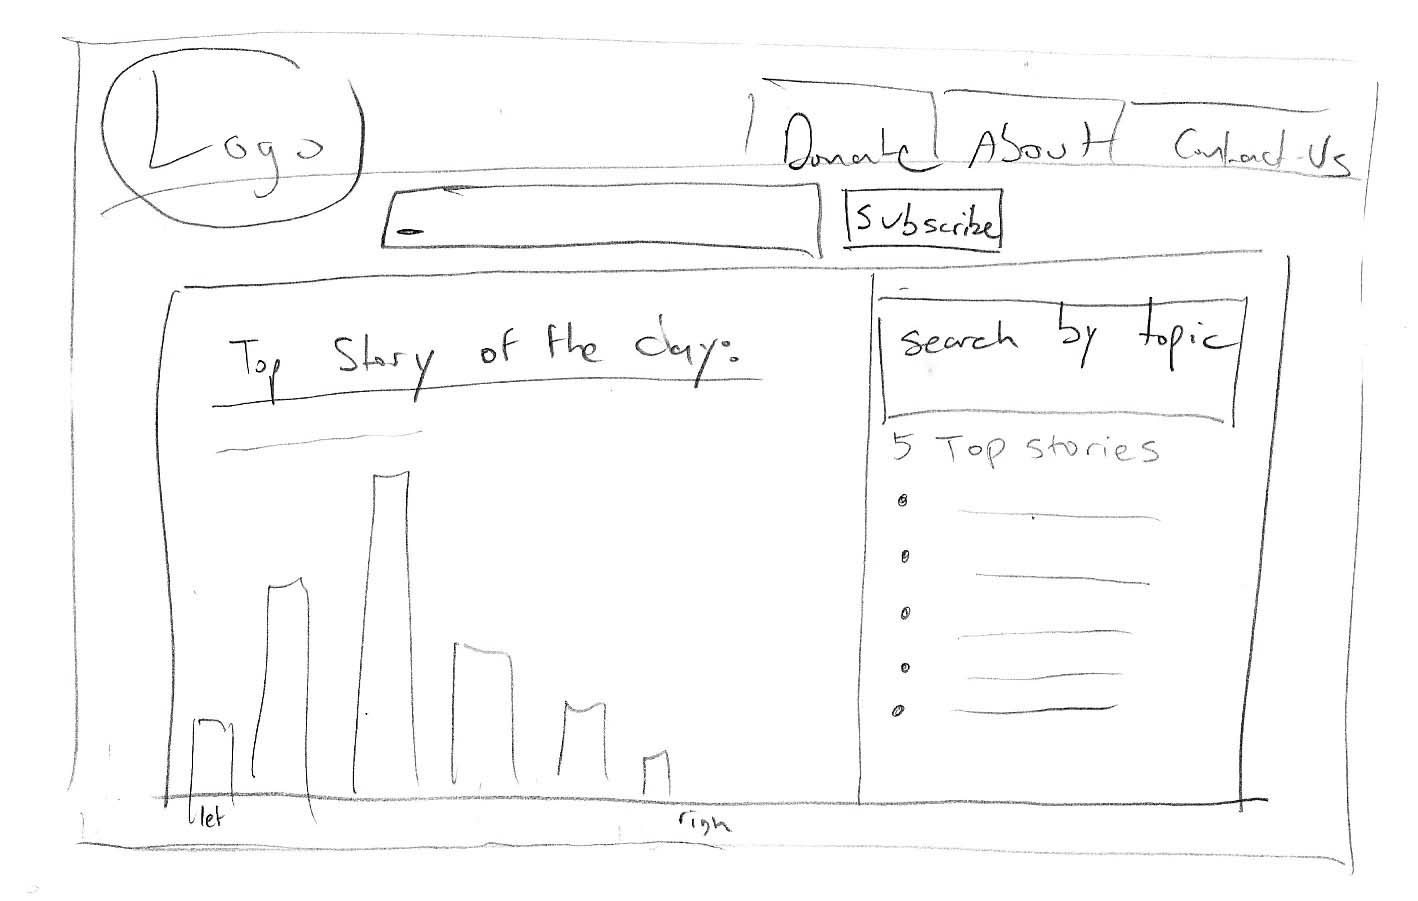 Logo
Donate
About
Contact-Us
Subscribe
Top Story of the day:
Search by topic
5 Top stories
let
righ